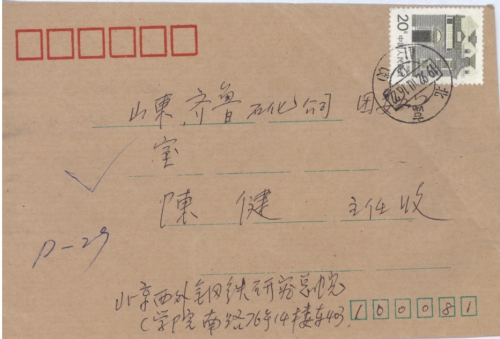 20
中国人民邮政
北
山東 齐鲁石化公司 团委
室
陳 健 主任 收
D-29
北京西外钢铁研究总院
(学院南路76号14楼东403
100081